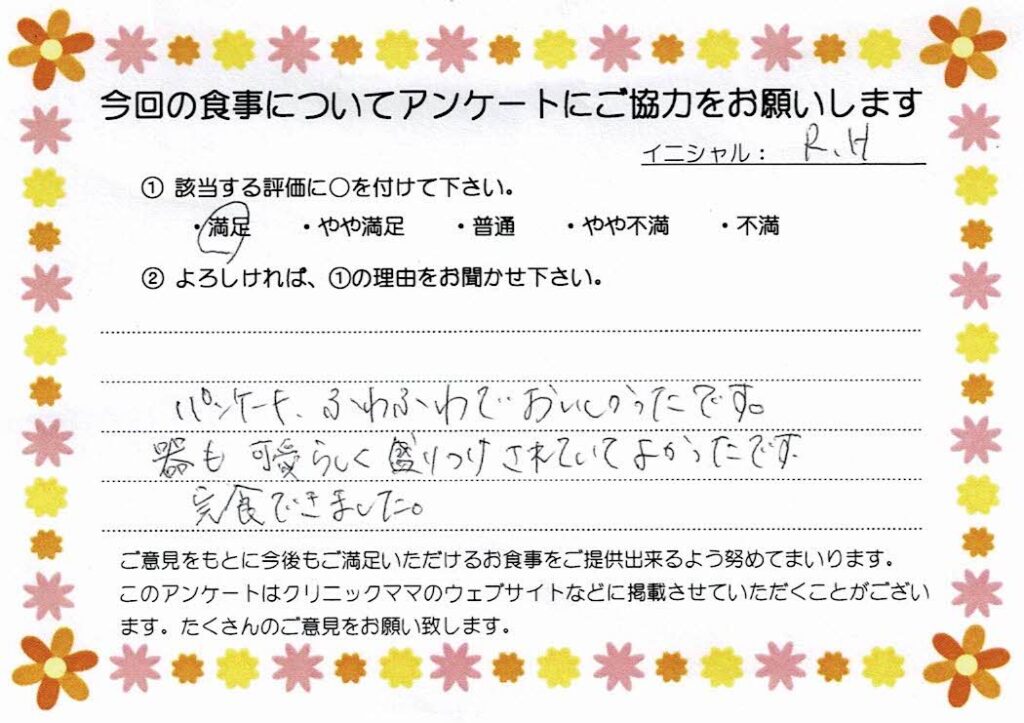 今回の食事についてアンケートにご協力をお願いします
イニシャル： R.H
① 該当する評価に〇を付けて下さい。
・満足 ・やや満足 ・普通 ・やや不満 ・不満
② よろしければ、①の理由をお聞かせ下さい。
パンケーキ、ふわふわでおいしかったです。
器も可愛らしく盛りつけされていてよかったです
完食できました。
ご意見をもとに今後もご満足いただけるお食事をご提供出来るよう努めてまいります。
このアンケートはクリニックママのウェブサイトなどに掲載させていただくことがござい
ます。たくさんのご意見をお願い致します。